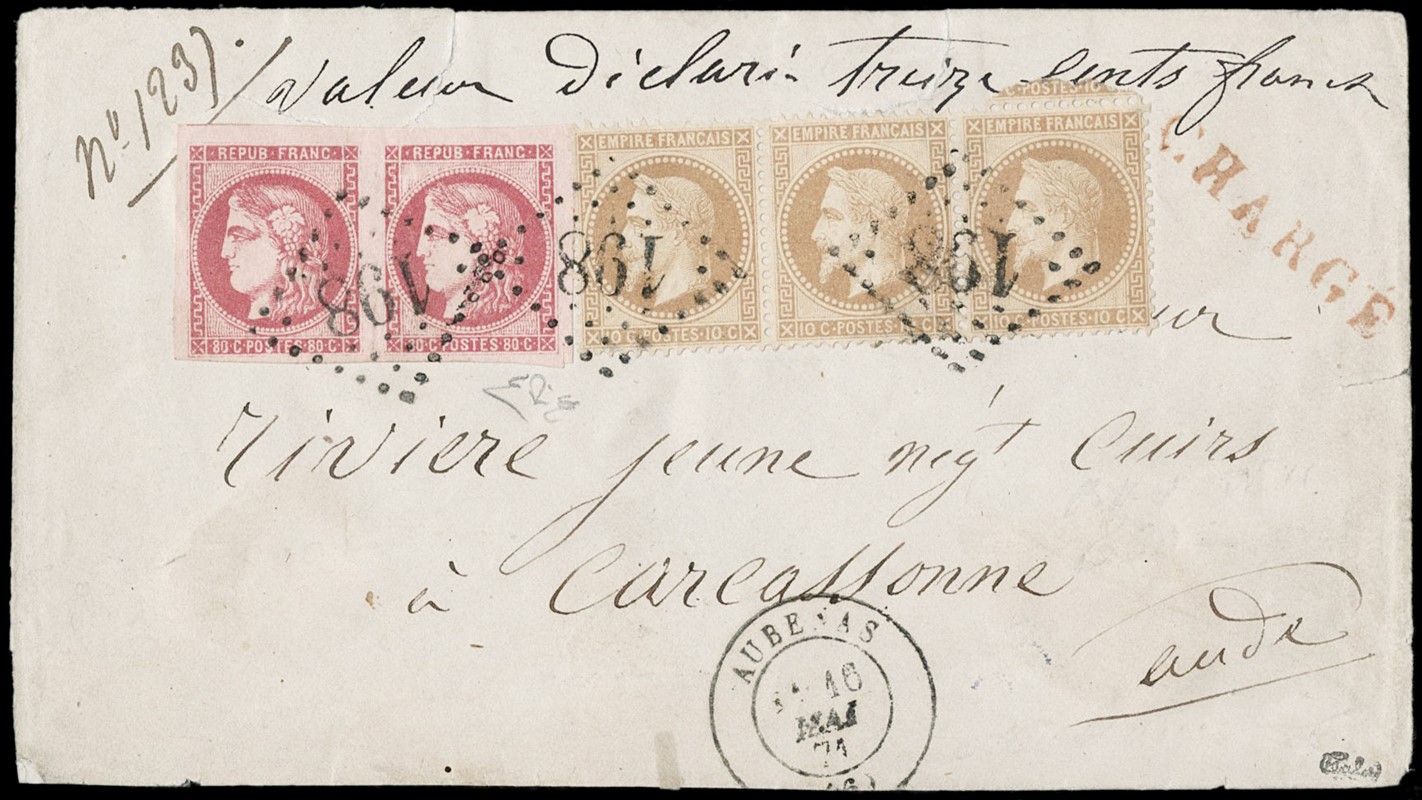 Nº 1237
Valeur Déclaré treize cents francs
C·POSTES·10 C
REPUB·FRANC·
REPUB·FRANC·
EMPIRE FRANÇAIS
EMPIRE FRANÇAIS
EMPIRE FRANÇAIS
CHARGÉ
198
198
198
80·C·POSTES·80·C
80·C·POSTES·80·C
10 C·POSTES·10 C
10 C·POSTES·10 C
10 C·POSTES·10 C
ur
Riviere jeune négt cuirs
à Carcassonne
aude
AUBENAS
16
MAI
71
(6)